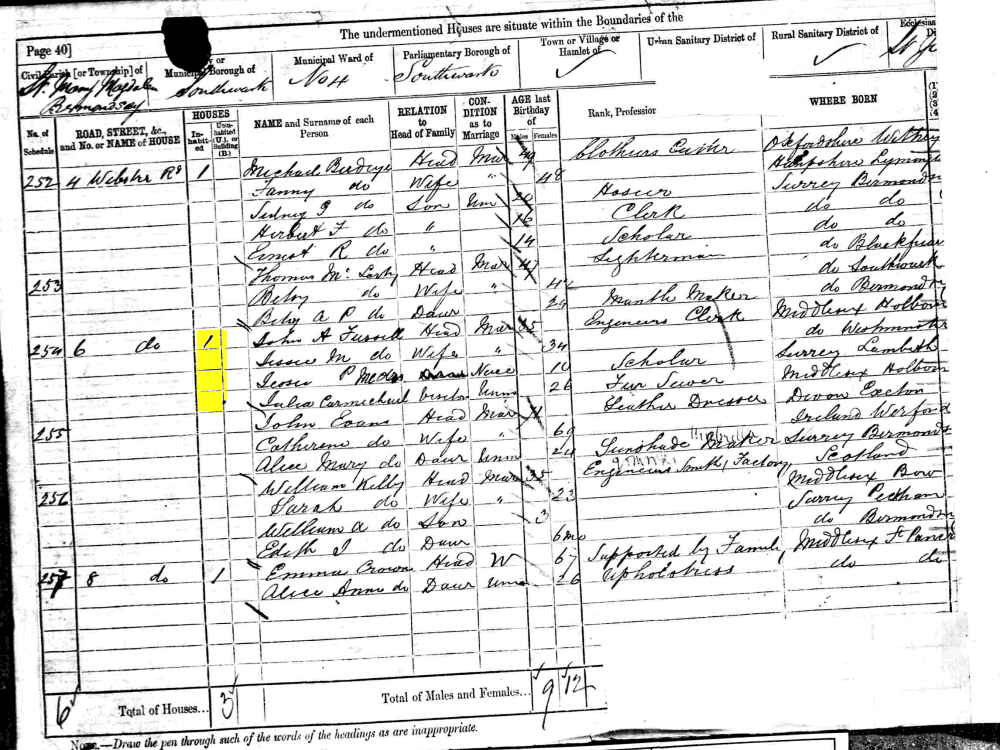 The undermentioned Houses are situate within the Boundaries of the
Page 40]
Civil Parish [or Township] of
St. Mary Magdalen Bermondsey
Municipal Borough of
Southwark
Municipal Ward of
No 4
Parliamentary Borough of
Southwark
Town or Village or Hamlet of
Urban Sanitary District of
Rural Sanitary District of
No. of Schedule
ROAD, STREET, &c., and No. or NAME of HOUSE
HOUSES
Inhabited
Uninhabited (U.), or Building (B.)
NAME and Surname of each Person
RELATION to Head of Family
CONDITION as to Marriage
AGE last Birthday of
Males Females
Rank, Profession
WHERE BORN
252 4 Webster Rd 1 Michael Head Mar 49 Clothiers Cutter Oxfordshire Witney
Fanny do Wife " 48 Hampshire Lyming
Sidney J do Son Un 20 Hosier Surrey Bermonds
Herbert F do " 16 Clerk do do
Ernest R do " 14 Scholar do do
253 Thomas Mc Head Mar 47 Lighterman do Blackfriar
Betsy do Wife " 42 do Southwark
Betsy A P do Daur 24 Mantle Maker do Bermonds
254 6 do 1 John A Fussell Head Mar 35 Engineers Clerk Middlesex Holborn
Jessie M do Wife " 34 do Westminster
Jessie P Niece 10 Scholar Surrey Lambeth
Julia Carmichael Visitor Unm 26 Fur Sewer Middlesex Holborn
255 John Evans Head Mar Leather Dresser Devon Exeton
Catherine do Wife " 60 Ireland Wexford
Alice Mary do Daur Unm 24 Sunshade Maker Surrey Bermonds
256 William Kelby Head Mar 35 Engineers Smith, Factory Scotland
Sarah do Wife " 23 Middlesex Bow
William A do Son 3 Surrey Peckham
Edith J do Daur 6 mo do Bermonds
257 8 do 1 Emma Crown Head W 67 Supported by Family Middlesex St Pancr
Alice Anne do Daur Unm 26 Upholstress do do
6 Total of Houses... 3 Total of Males and Females... 9 12
NOTE.—Draw the pen through such of the words of the headings as are inappropriate.